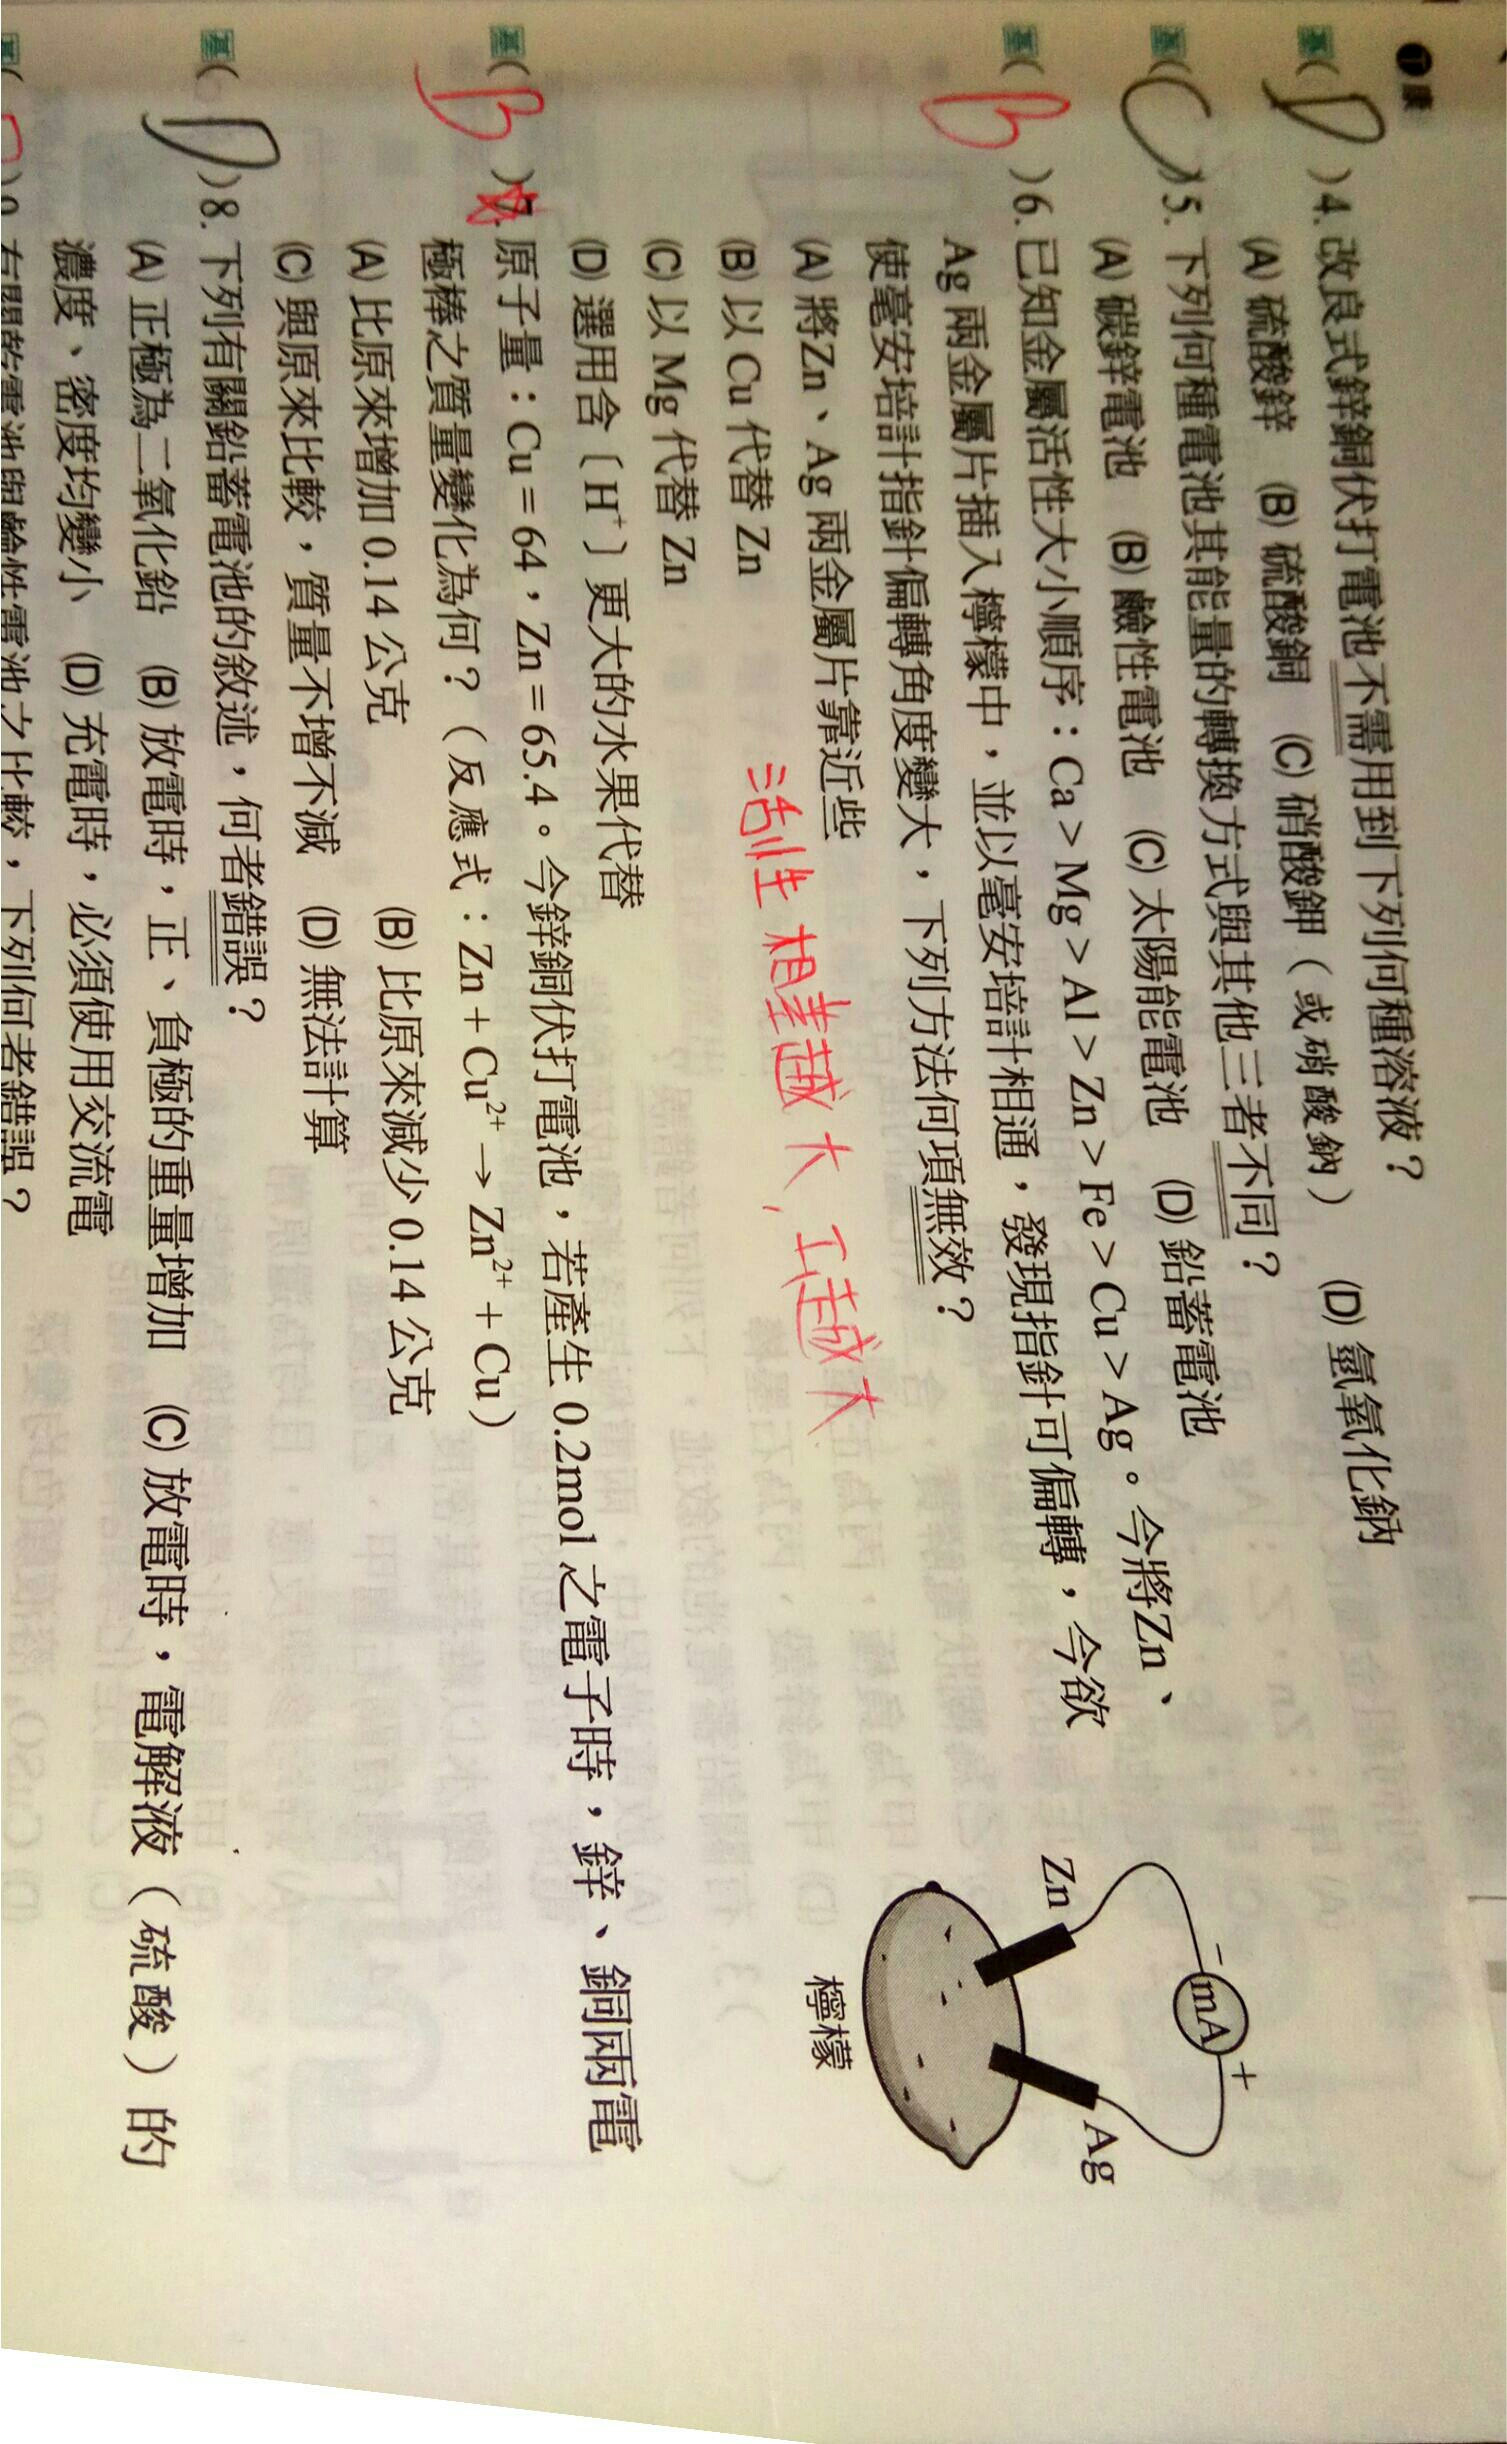 基( D )4. 改良式鋅銅伏打電池不需用到下列何種溶液？
(A) 硫酸鋅 (B) 硫酸銅 (C) 硝酸鉀（或硝酸鈉） (D) 氫氧化鈉
基( C )5. 下列何種電池其能量的轉換方式與其他三者不同？
(A) 碳鋅電池 (B) 鹼性電池 (C) 太陽能電池 (D) 鉛蓄電池
基( B )6. 已知金屬活性大小順序：Ca > Mg > Al > Zn > Fe > Cu > Ag。今將Zn、
Ag 兩金屬片插入檸檬中，並以毫安培計相通，發現指針可偏轉，今欲
使毫安培計指針偏轉角度變大，下列方法何項無效？
(A) 將Zn、Ag 兩金屬片靠近些
(B) 以 Cu 代替 Zn
=活性相差越大，I越大
(C) 以 Mg 代替 Zn
(D) 選用含〔H⁺〕更大的水果代替
Zn
− mA +
Ag
檸檬
基( B )7. 原子量：Cu = 64，Zn = 65.4。今鋅銅伏打電池，若產生 0.2mol 之電子時，鋅、銅兩電
極棒之質量變化為何？（反應式：Zn + Cu²⁺ → Zn²⁺ + Cu）
(A) 比原來增加 0.14 公克 (B) 比原來減少 0.14 公克
(C) 與原來比較，質量不增不減 (D) 無法計算
基( D )8. 下列有關鉛蓄電池的敘述，何者錯誤？
(A) 正極為二氧化鉛 (B) 放電時，正、負極的重量增加 (C) 放電時，電解液（硫酸）的
濃度、密度均變小 (D) 充電時，必須使用交流電
)9. 有關乾電池與鹼性電池之比較，下列何者錯誤？